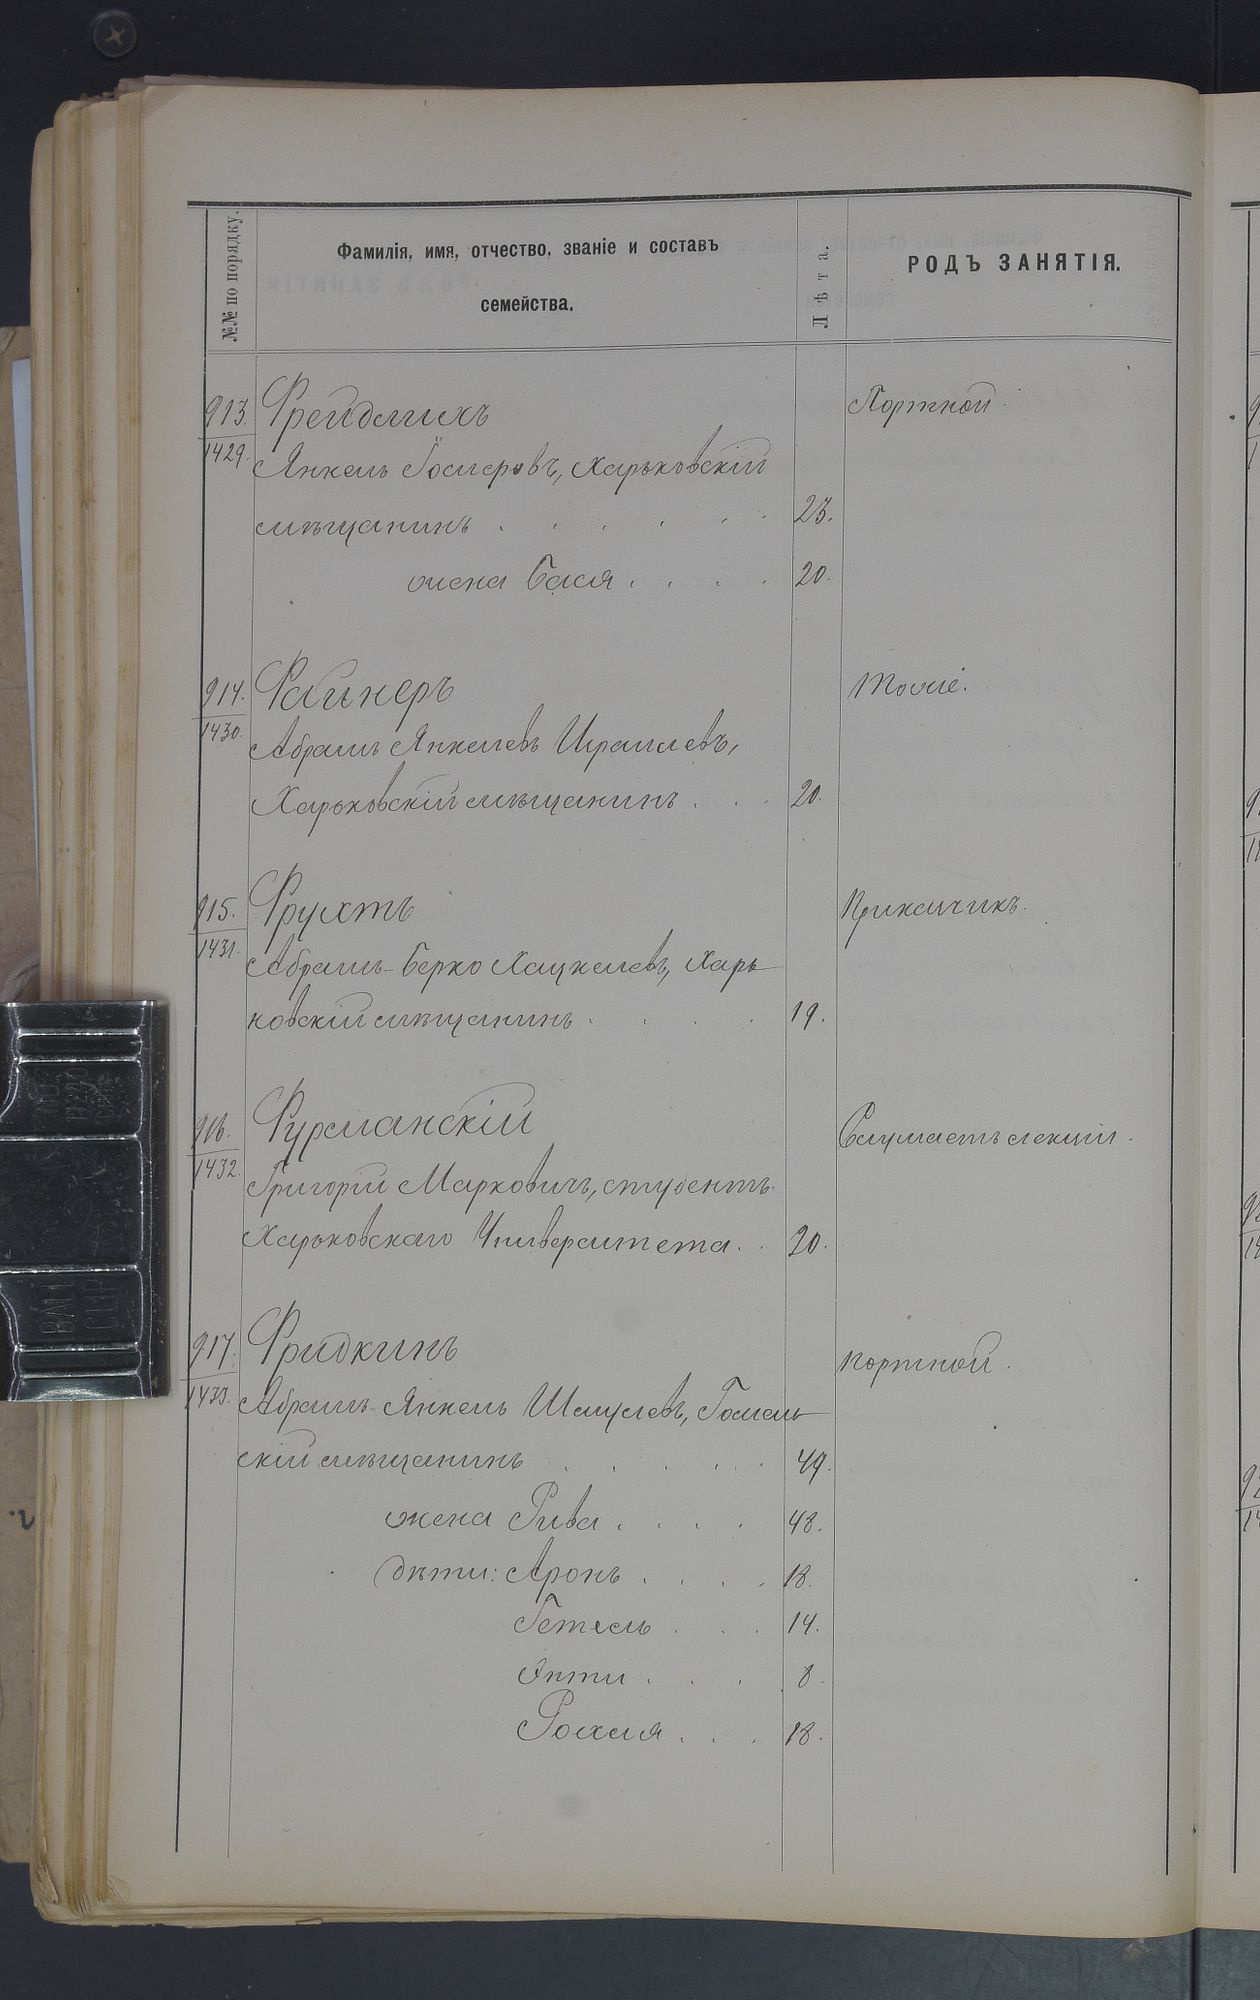 №№ по порядку.
Фамилія, имя, отчество, званіе и составъ
семейства.
Лѣта.
РОДЪ ЗАНЯТІЯ.
913. Фрейдлихъ Портной.
1429.
Янкель Гослеровъ, Харьковскій
мѣщанинъ . . . . . . 23.
жена Бася . . . . 20.
914. Файнеръ Тоже.
1430.
Абрамъ Янкелевъ Израилевъ,
Харьковскій мѣщанинъ . . . 20.
915. Фрухтъ Прикащикъ.
1431.
Абрамъ-Берко Хацкелевъ, Харь
ковскій мѣщанинъ . . . . 19.
916. Фурманскій Слушаетъ лекціи.
1432.
Григорій Марковичъ, студентъ
Харьковскаго Университета . . 20.
917. Фридкинъ Портной.
1433.
Абрамъ-Янкель Шмулевъ, Гомель
скій мѣщанинъ . . . . . 49.
жена Рива . . . . 48.
дѣти: Аронъ . . . . 18.
Гетсель . . . 14.
8.
Рохля . . . 18.
BALL
CLIP